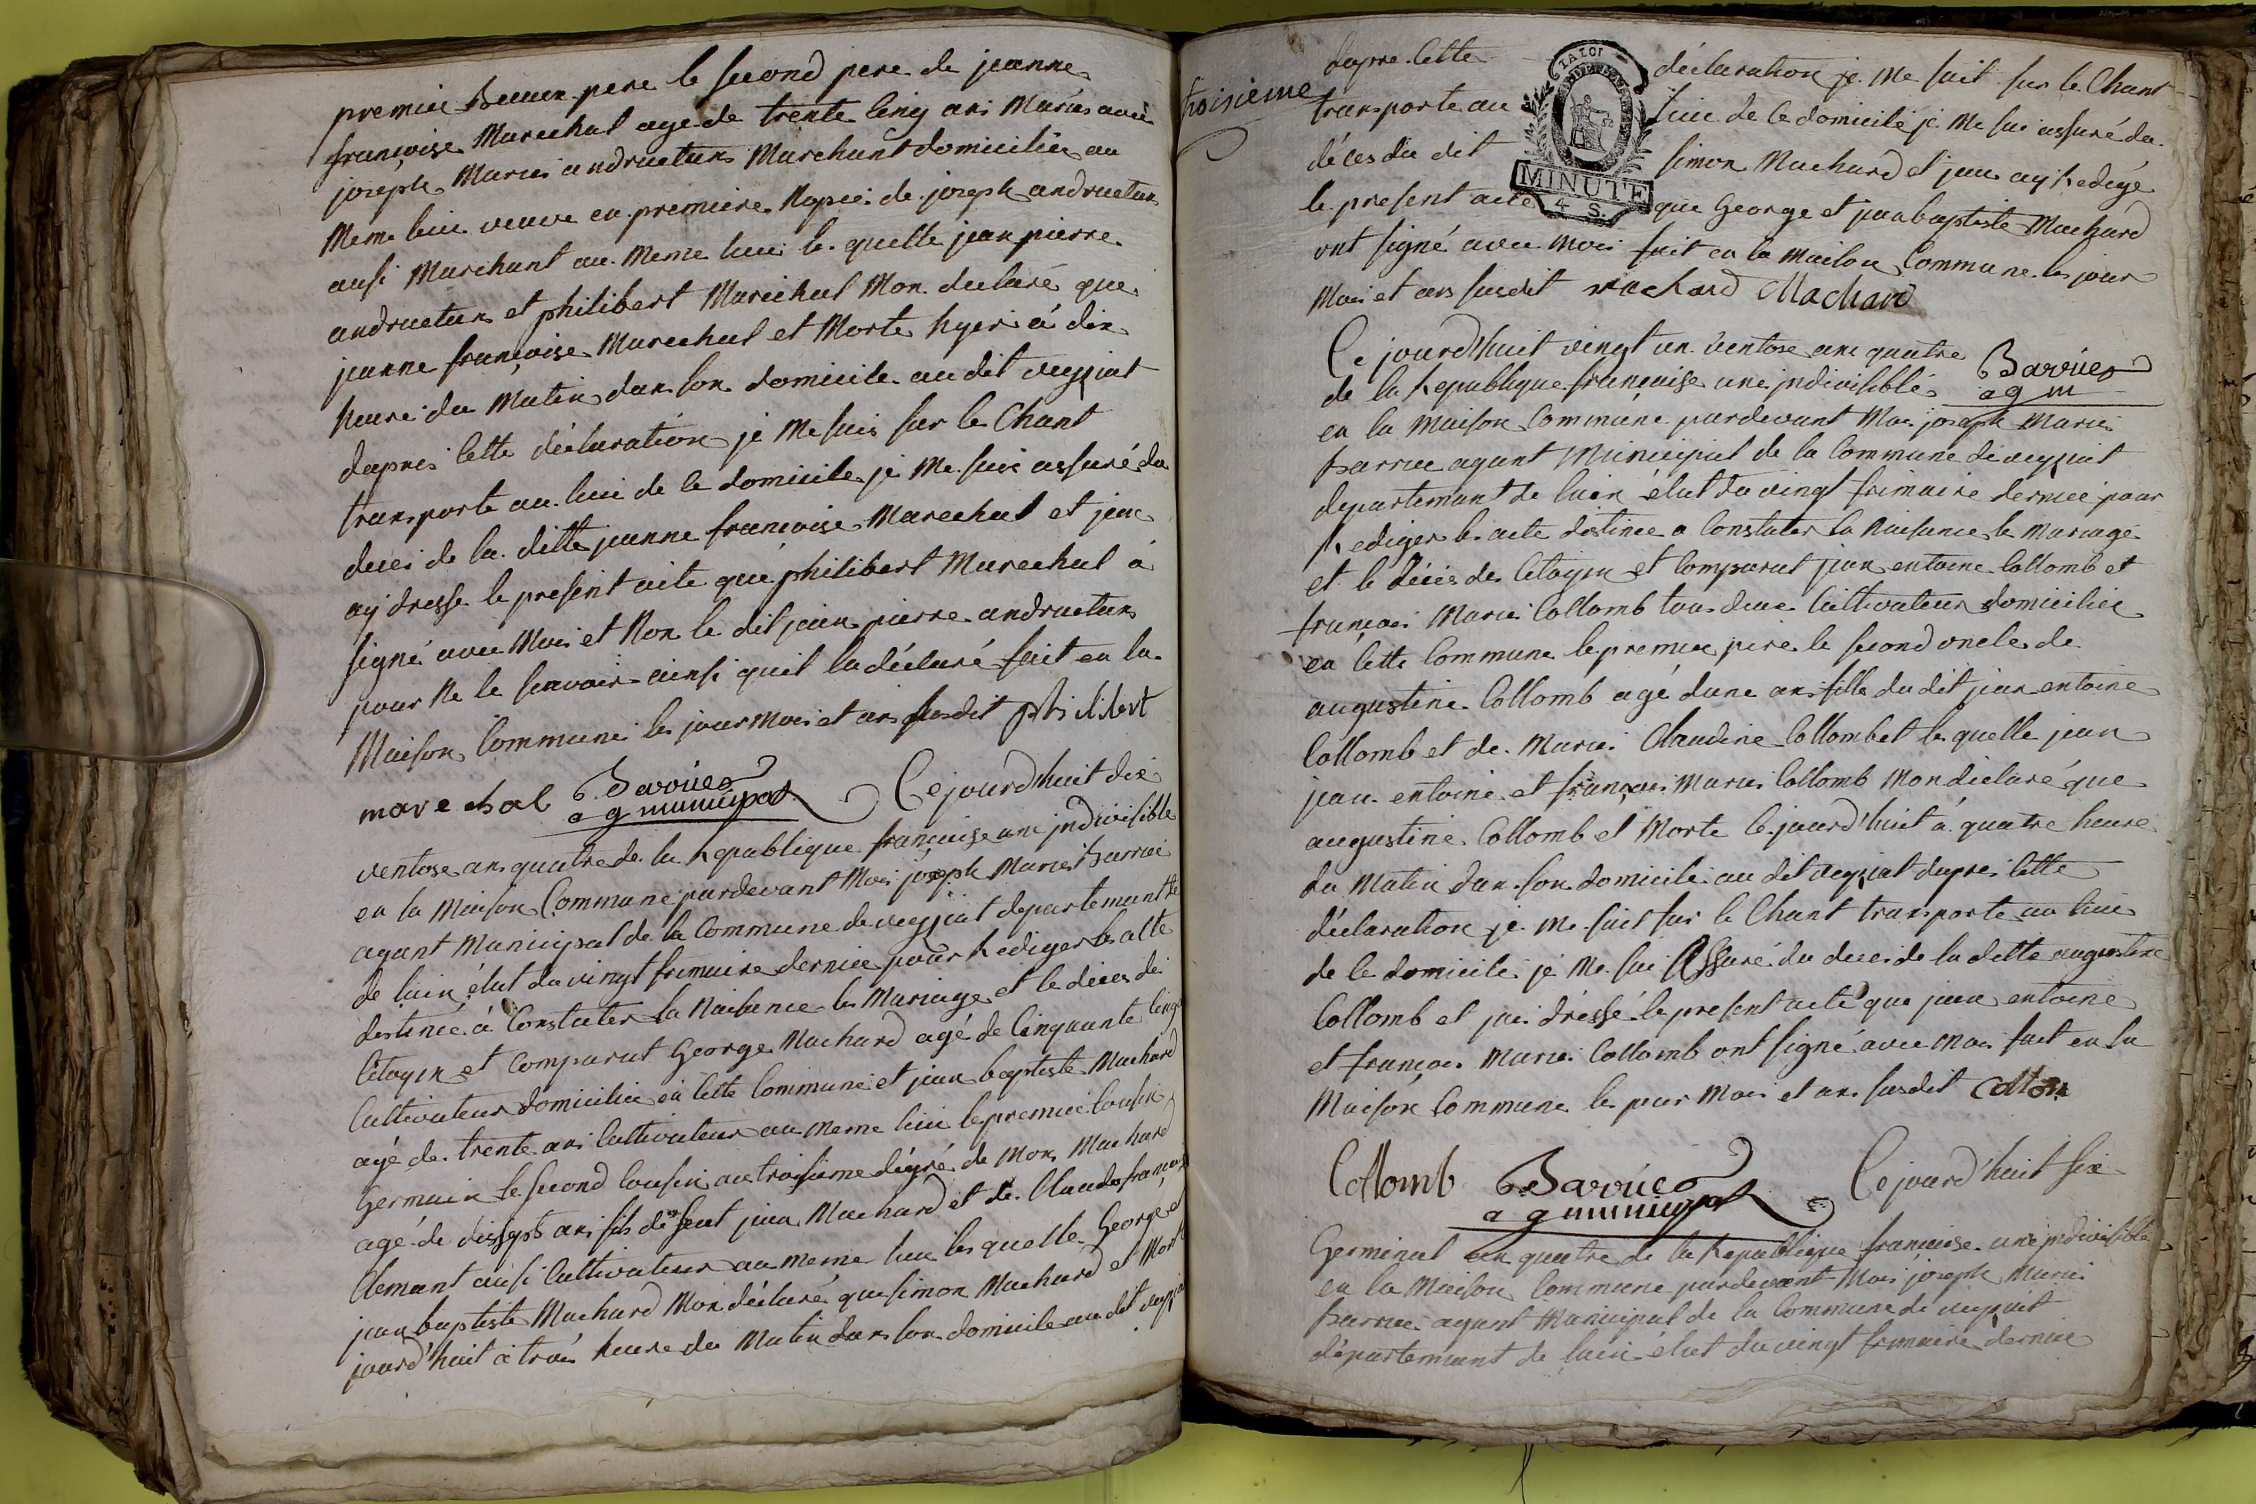 premier Beaux pere le second pere de jeanne
françoise Marechal age de trente cinq ans Maries avec
joseph Maries andruetan Marchant domicilie au
Meme lieu veuve en premiere Nopces de joseph andruetan
ausi Marchant au Meme lieu les quelle jean pierre
andruetan et philibert Marechal Mon declaré que
jeanne françoise Marechal et Morte hyer à dix
heure du Matin dans son domicile au dit veyziat
dapres cette déclaration je Me suis sur le Chant
transporte au lieu de ce domicile je Me suis assuré du
deces de la ditte jeanne françoise Marechal et jeu
ay dresse le present acte que philibert Marechal à
signé avec Mois et Non le dit jean pierre andruetan
pour Ne le scavoir ainsi quil la déclaré fait en la
Maison Commune les jour Mois et ans susdit philibert
marechal Barrues
a g municipal Ce jourd'huit dix
ventose ans quatre de la Republique française une jndivisible
en la Maison Commune pardevant Mois joseph Maries Barrue
agant Municipal de la Commune de veyziat departemant de
de lain élut du vingt frimaire dernier pour Rediger les acte
destinée à Constater la Naisance les Mariage et le déces des
Citoyen et Comparut George Machard agé de Cinquante cinq
Cultivateur domicilie en cette Commune et jean baptiste Machard
agé de trente ans Cultivateur au Meme lieu le premier Cousin
Germain le second Cousin au troisieme dégré de Mon Machard
agé de dissept ans fils de feut jean Machard et de Claude françoise
Clemant ausi Cultivateur au meme lieu les quelle George et
jean baptiste Machard Mon déclaré que simon Machard et Mort
jourd'huit à trois heure du Matin dans son domicile au dit veyziat
troisieme
dapre Cette déclaration je Me suit sur le Chant
transporte au lieu de ce domicile je Me sui assuré du
déces du dit simon Machard et jeu ay Redigé
le present acte que George et jean baptiste Machard
ont signé avec Mois fait en la Maison Commune les jour
Mois et ans susdit Machard Machard
LA LOI
MINUTE
4 S.
Ce jourd'huit vingt un Ventose ans quatre Barrues
de la Republique française une jndivisible a g m
en la Maison Commune pardevant Mois joseph Maries
Barrue agant Municipal de la Commune de veyziat
departemant de lain élut du vingt frimaire dernier pour
Rediger les acte destinée a Constater la Naisance les Mariage
et le déces des Citoyen et Comparut jean entoine Collomb et
françois Maries Collomb tous deux Cultivateur domicilie
en Cette Commune le premier pere le second oncle de
augustine Collomb agé dune ans fille du dit jean entoine
Collomb et de Maries Claudine Collombet les quelle jean
jean entoine et françois Maries Collomb Mon déclaré que
augustine Collomb et Morte Ce jourd'huit à quatre heure
du Matin dans son domicile au dit veyziat dapres Cette
déclaration je Me suit sur le Chant transporte au lieu
de ce domicile je Me sui Assuré du deces de la ditte augustine
Collomb et jai dréssé le present acte que jean entoine
et françois Maries Collomb ont signé avec Mois fait en la
Maison Commune les jour Mois et ans susdit Collon
Collomb Barrues
a g municipal Ce jourd'huit six
Germinal an quatre de la Republique française une jndivisible
en la Maison Commune pardevant Mois joseph Maries
Barrue agant Municipal de la Commune de veyziat
départemant de lain élut du vingt frimaire dernier